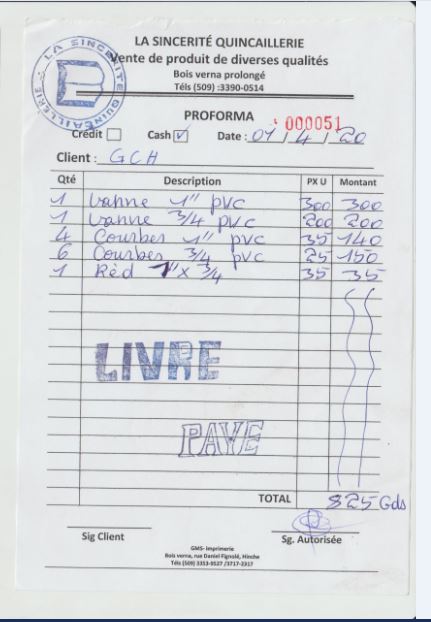 LA SINCERITÉ QUINCAILLERIE
LA SINCERITÉ QUINCAILLERIE
Vente de produit de diverses qualités
Bois verna prolongé
Téls (509) :3390-0514
PROFORMA
000051
Crédit Cash ✓ Date : 07 / 4 / 20
Client : GCH
Qté Description PX U Montant
1 Vanne 1" pvc 300 300
1 Vanne 3/4 pvc 200 200
4 Courbes 1" pvc 35 140
6 Courbes 3/4 pvc 25 150
1 Réd 1" x 3/4 35 35
LIVRE
PAYE
TOTAL 825 Gds
Sig Client Sg. Autorisée
GMS- Imprimerie
Bois verna, rue Daniel Fignolé, Hinche
Téls (509) 3353-9527 /3717-2317